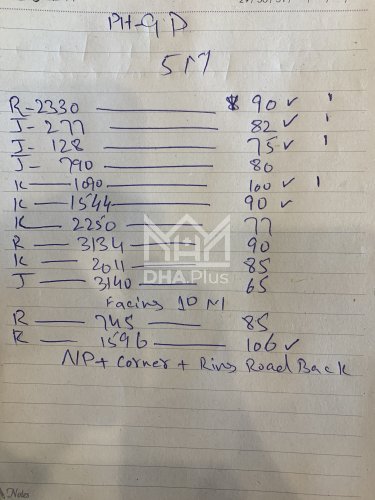 PH-9 D
5M
R-2330 — 90 ✓ '
J-277 — 82 ✓ '
J-128 — 75 ✓ '
J-790 — 80
K — 1090 — 100 ✓ '
K — 1544 — 90 ✓
K — 2250 — 77
R — 3134 — 90
K — 2011 — 85
J — 3140 — 65
Facing 10 M
R — 745 — 85
R — 1596 — 106 ✓
NP + Corner + Ring Road Back
DHA.Plus
Notes